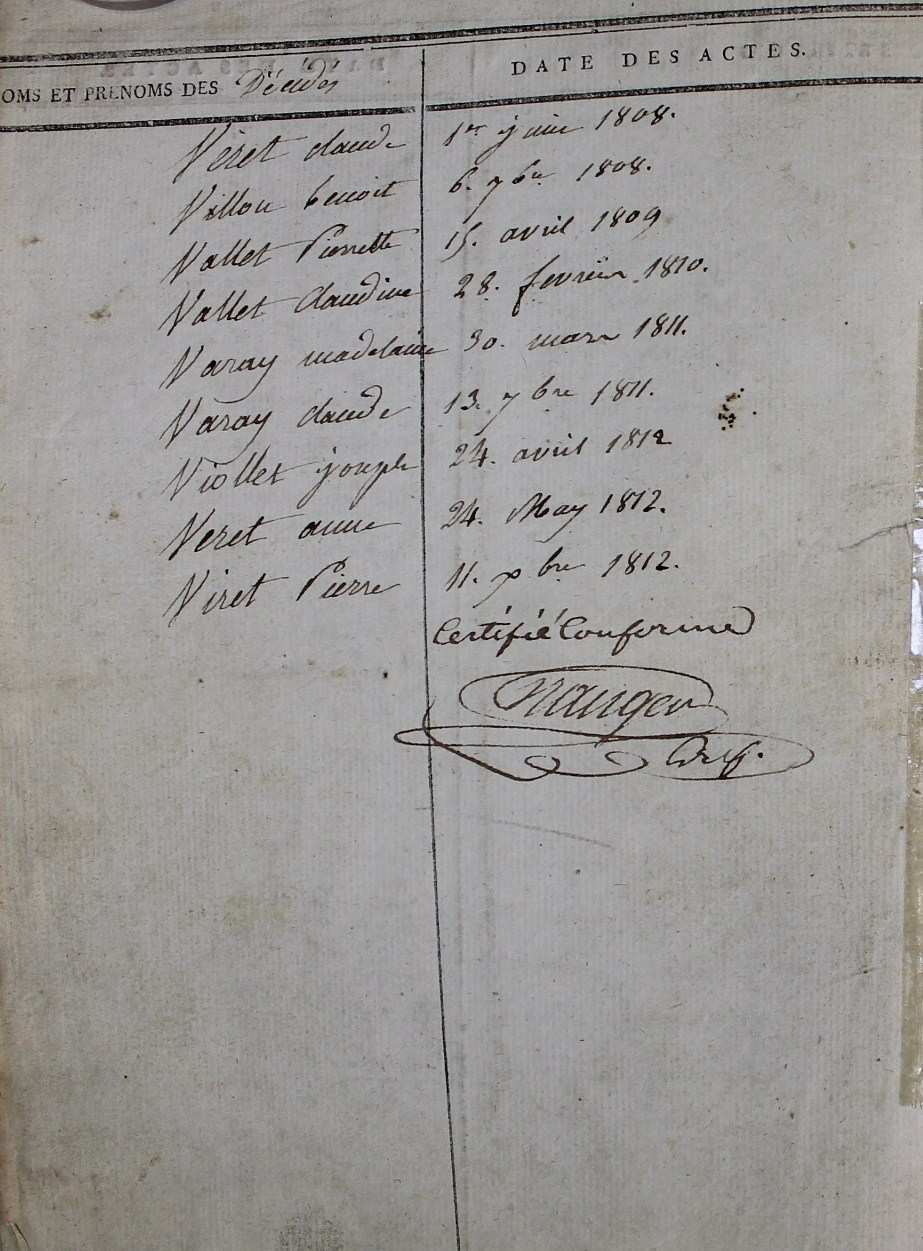 OMS ET PRENOMS DES Décédés
DATE DES ACTES.
Veret claude 1er juin 1808.
Villon benoit 6. 7bre 1808.
Vallet Pierrette 15. avril 1809
Vallet Claudine 28. fevrier 1810.
Varay madelaine 30. mars 1811.
Varay claude 13. 7bre 1811.
Viollet joseph 24. avril 1812
Veret anne 24. May 1812.
Viret Pierre 11. xbre 1812.
Certifié Conforme